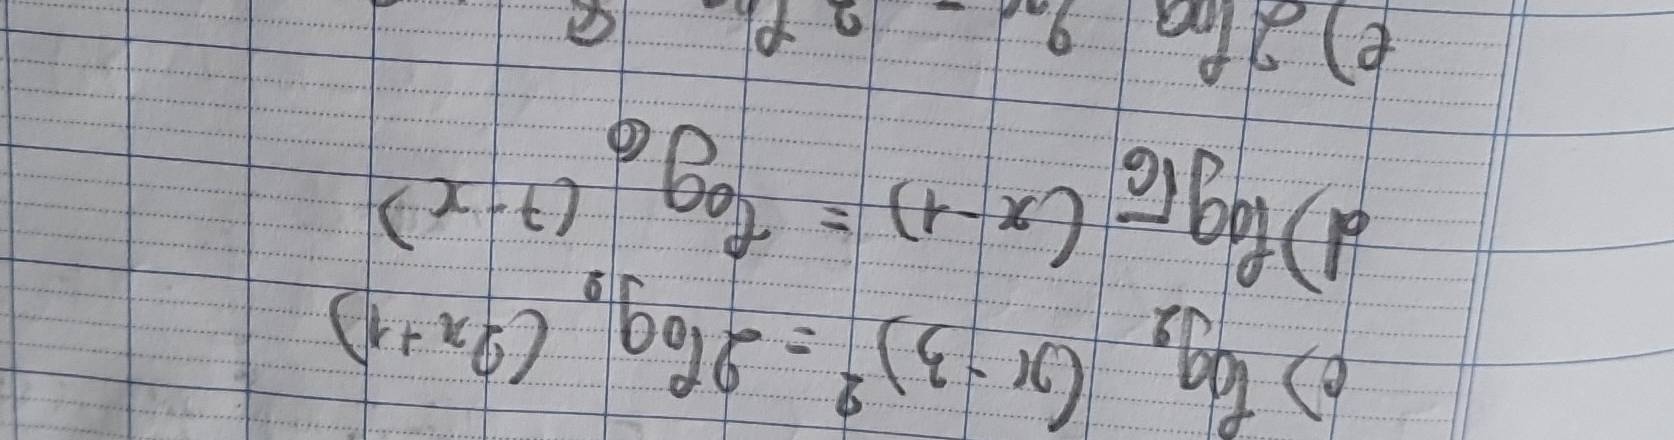 c) log₂ (x - 3)² = 2log₂ (2x + 1)
d) log_√6 (x - 1) = log₆ (7 - x)
e) 2log